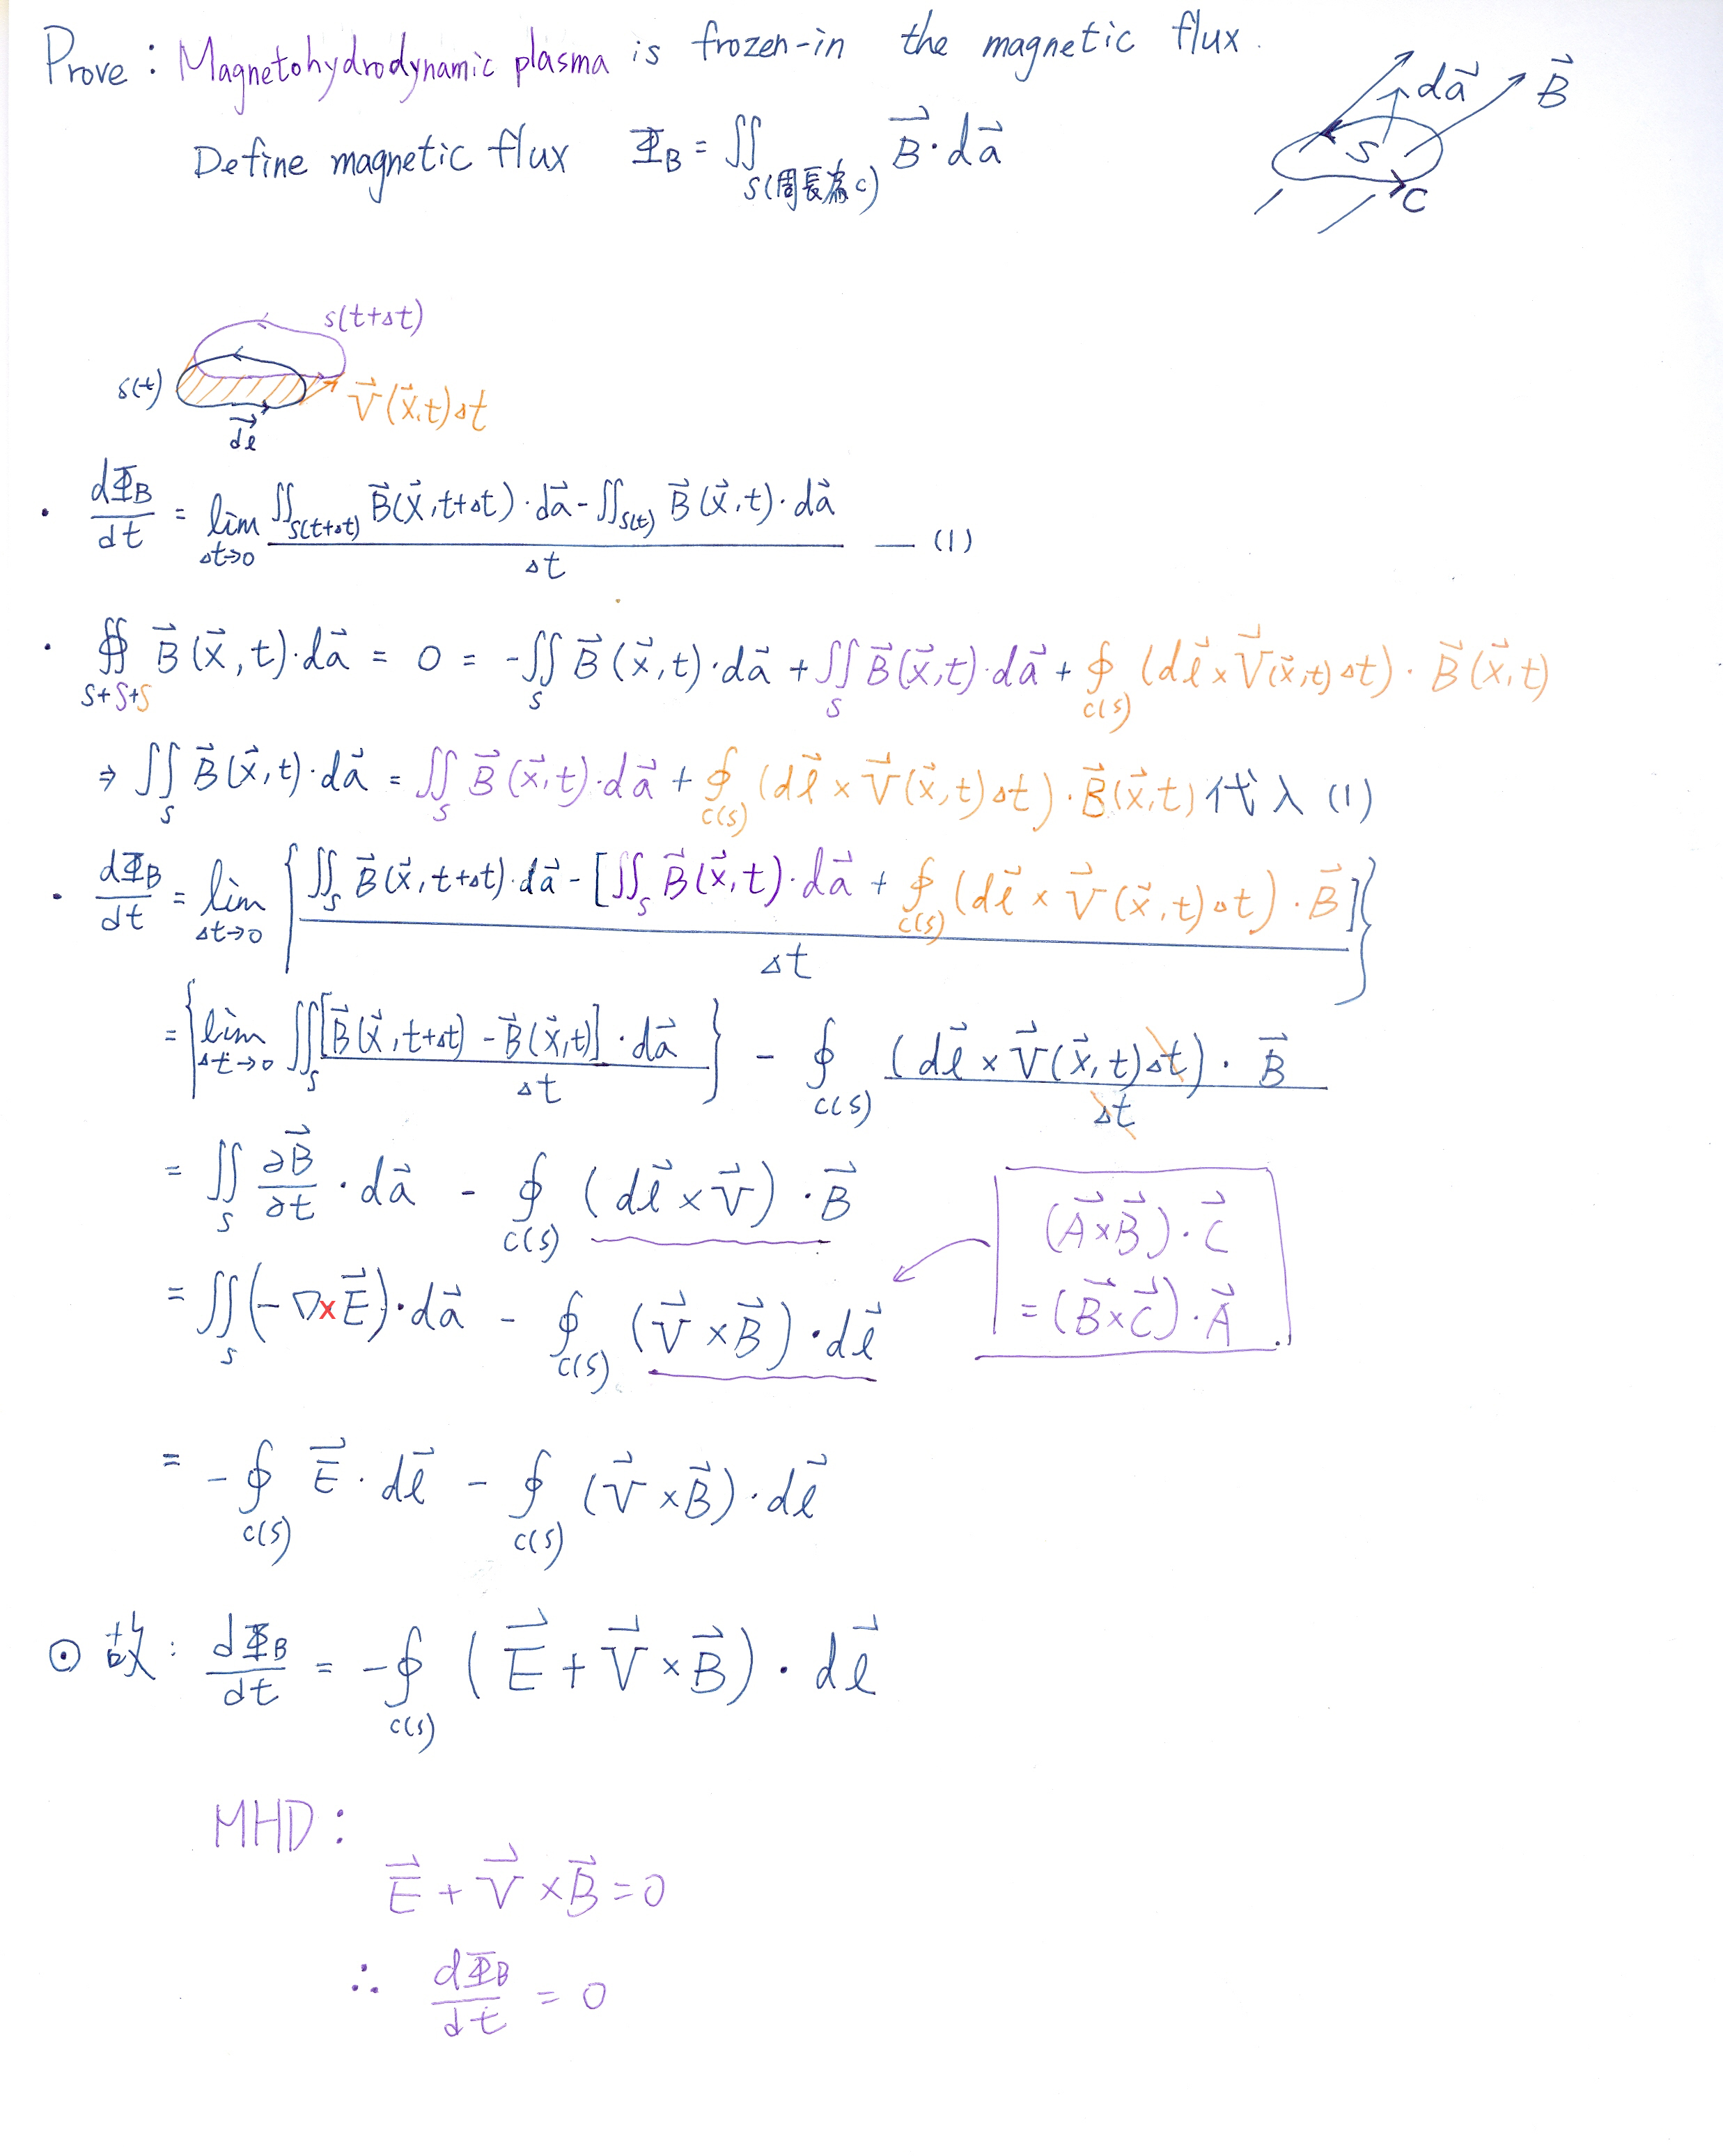 Prove : Magnetohydrodynamic plasma is frozen-in the magnetic flux.
Define magnetic flux Φ_B = ∬_{S(周長為C)} B⃗·da⃗
da⃗ B⃗ S C
S(t+Δt)
S(t)
V⃗(x⃗,t)Δt
dℓ⃗
· dΦ_B/dt = lim_{Δt→0} [∬_{S(t+Δt)} B⃗(x⃗,t+Δt)·da⃗ - ∬_{S(t)} B⃗(x⃗,t)·da⃗] / Δt — (1)
· ∯_{S+S+S} B⃗(x⃗,t)·da⃗ = 0 = -∬_S B⃗(x⃗,t)·da⃗ + ∬_S B⃗(x⃗,t)·da⃗ + ∮_{C(S)} (dℓ⃗ × V⃗(x⃗,t)Δt)·B⃗(x⃗,t)
⇒ ∬_S B⃗(x⃗,t)·da⃗ = ∬_S B⃗(x⃗,t)·da⃗ + ∮_{C(S)} (dℓ⃗ × V⃗(x⃗,t)Δt)·B⃗(x⃗,t) 代入 (1)
· dΦ_B/dt = lim_{Δt→0} { ∬_S B⃗(x⃗,t+Δt)·da⃗ - [∬_S B⃗(x⃗,t)·da⃗ + ∮_{C(S)} (dℓ⃗ × V⃗(x⃗,t)Δt)·B⃗] / Δt }
= { lim_{Δt→0} ∬_S [B⃗(x⃗,t+Δt) - B⃗(x⃗,t)]·da⃗ / Δt } - ∮_{C(S)} (dℓ⃗ × V⃗(x⃗,t)Δt)·B⃗ / Δt
= ∬_S ∂B⃗/∂t · da⃗ - ∮_{C(S)} (dℓ⃗ × V⃗)·B⃗
(A⃗×B⃗)·C⃗
= (B⃗×C⃗)·A⃗
= ∬_S (-∇×E⃗)·da⃗ - ∮_{C(S)} (V⃗ × B⃗)·dℓ⃗
= -∮_{C(S)} E⃗·dℓ⃗ - ∮_{C(S)} (V⃗ × B⃗)·dℓ⃗
⊙ 故 : dΦ_B/dt = -∮_{C(S)} (E⃗ + V⃗ × B⃗)·dℓ⃗
MHD :
E⃗ + V⃗ × B⃗ = 0
∴ dΦ_B/dt = 0